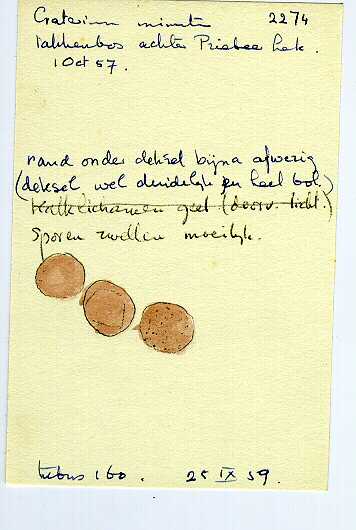 Craterium minutum 2274
takkenbos achter Priebee hek.
1 Oct 57.
rand onder deksel bijna afwezig
(deksel wel duidelijk en heel bol.)
Kalklichamen geel (doorv. licht.)
Sporen zwellen moeilijk.
tubus 160. 25 IX 59.